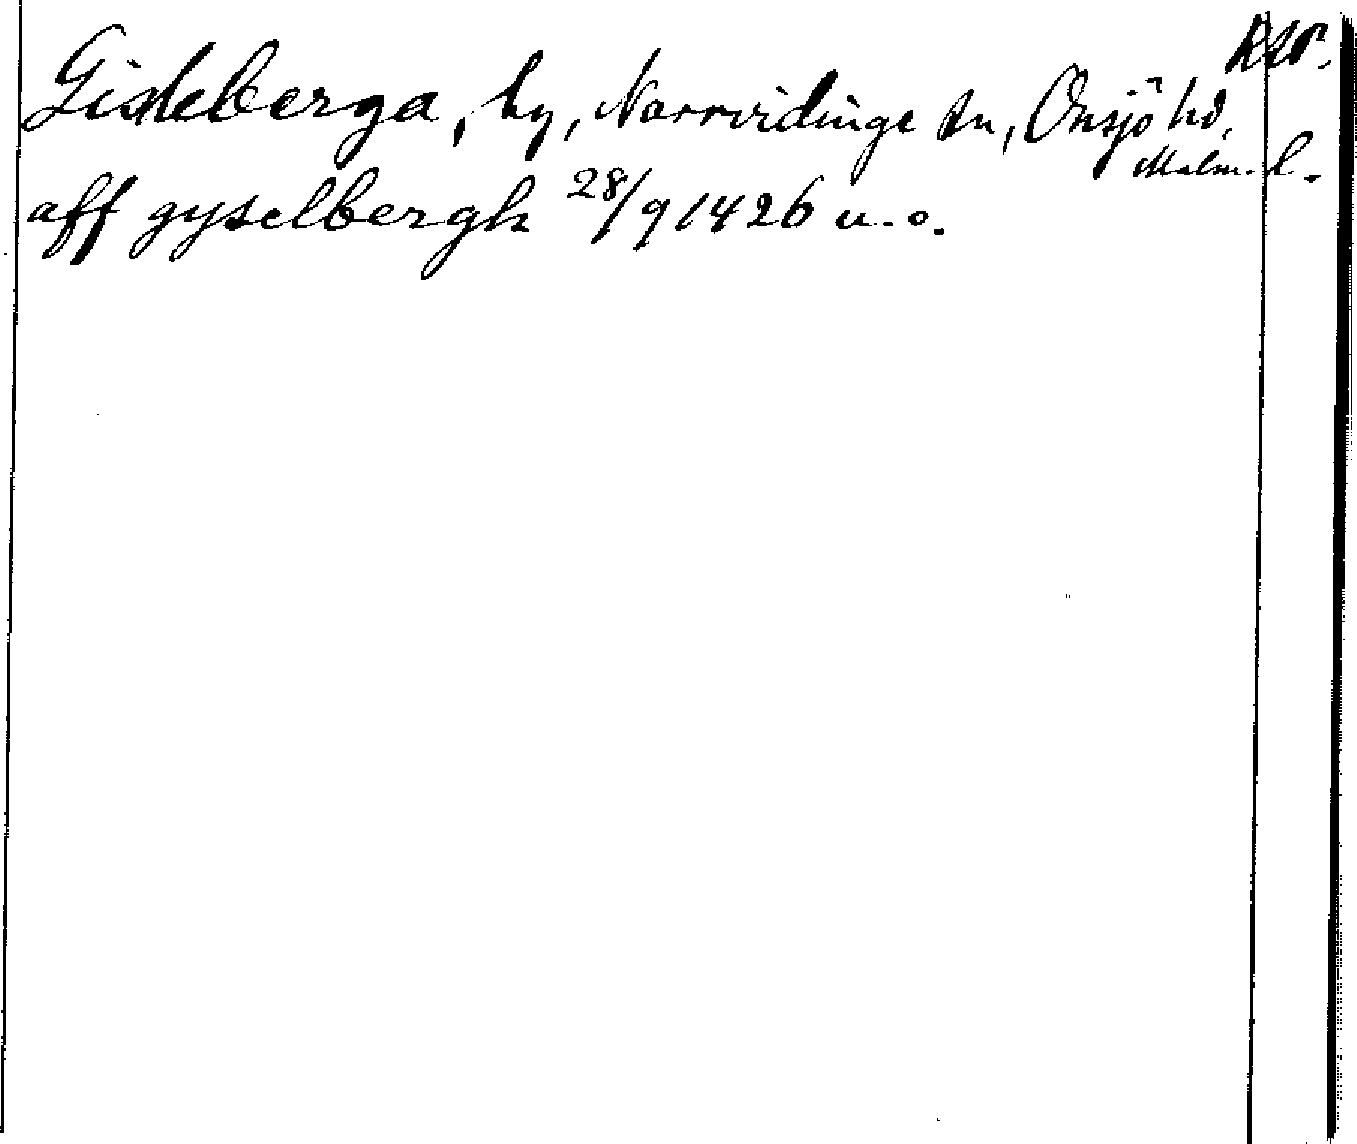 Gisleberga, by, Norrvidinge sn, Onsjö hd,
Malm. l.
aff gyselbergh 28/9 1426 u. o.